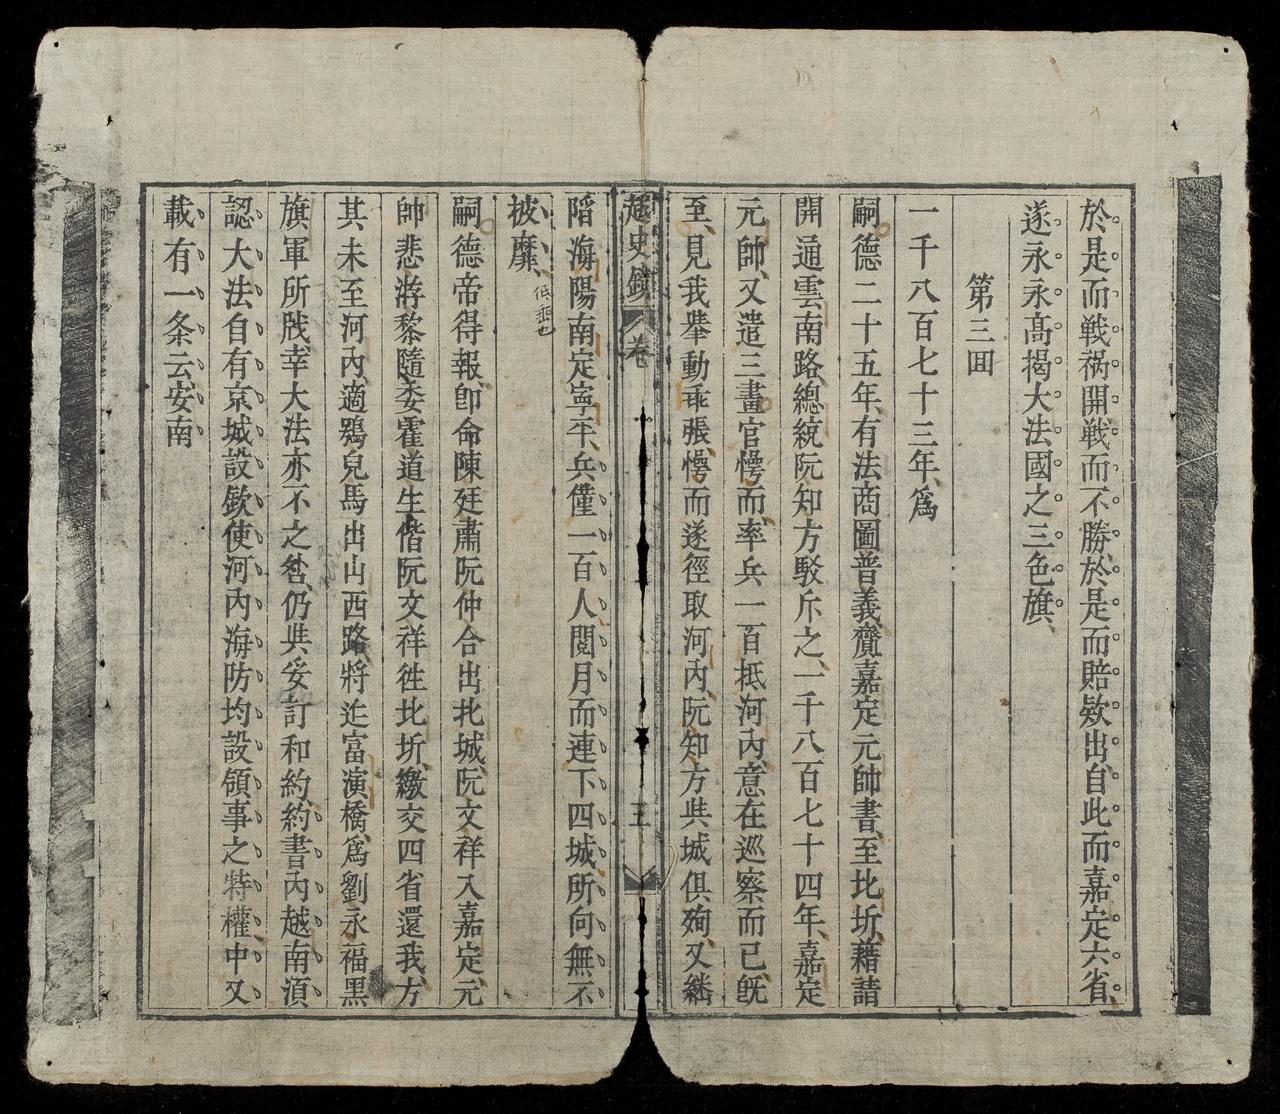 於是而戦祸開戦而不勝於是而賠欵出、自此而嘉定六省、
遂永永高揭大法國之三色旗、
第三囬
一千八百七十三年、爲
嗣德二十五年、有法商圖普義、齎嘉定元帥書、至北圻、藉請
開通雲南路、總統阮知方駁斥之、一千八百七十四年、嘉定
元帥、又遣三畫官愕而、率兵一百抵河內、意在巡察而已、旣
至、見我舉動乖張、愕而遂徑取河內、阮知方與城俱殉、又継
越史鏡
卷
三
陷海陽南定寧平、兵僅一百人、閱月而連下四城、所向無不
披靡、
低垂也
嗣德帝得報、卽命陳廷肅阮仲合出北城、阮文祥入嘉定、元
帥悲游黎隨委霍道生偕阮文祥徃北圻、繳交四省還我、方
其未至河內、適鶚兒馬出山西路、將近富演橋、爲劉永福黑
旗軍所戕、幸大法亦不之咎、仍共妥訂和約、約書內越南須
認大法自有京城設欽使、河內海防均設領事之特權、中又
載有一条云安南